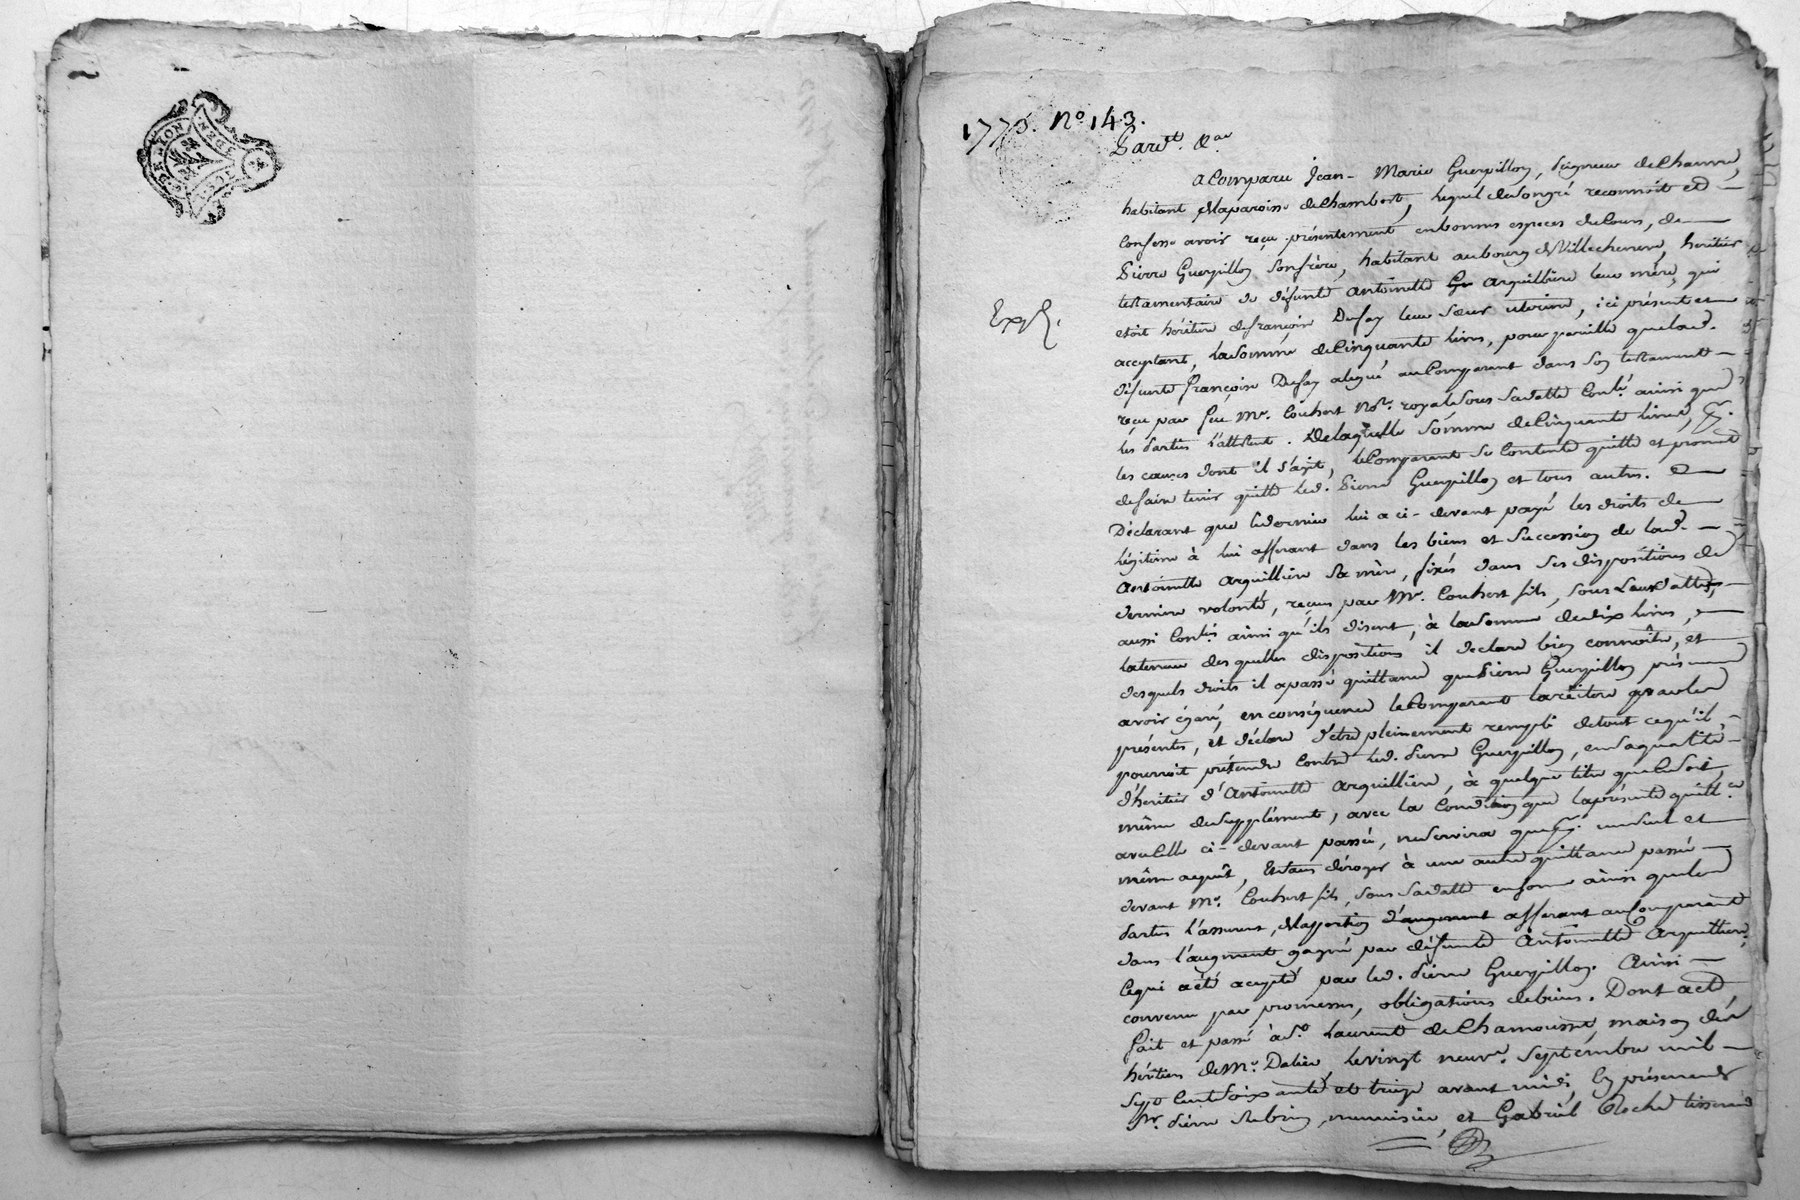 GEN. DE LYON
1773. No 143.
Pardt. &a.
a Comparu Jean-Marie Guerpillon, seigneur de Chamvre,
habitant de la paroisse de Chambost, lequel de son gré reconnoit et
Confesse avoir reçu présentement en bonnes especes de Cours, de
Pierre Guerpillon son frère, habitant au bourg de Villecheneve, heritier
testamentaire de défunte Antoinette Arquilliere leur mère, qui
etoit héritiere de françoise Dufay leur sœur uterine, ici présent et
acceptant, la somme de Cinquante livres, pour pareille que lad.
Expé.
défunte françoise Dufay a légué au Comparant dans son testament
reçu par feu Me. Couhert Nore. royal sous sa datte Conlé. ainsi que
les parties l'attestent. De laquelle somme de Cinquante livres,
les causes dont il s'agit, le Comparant se Contente quitte et promet
de faire tenir quitte led. Pierre Guerpillon et tous autres.
Déclarant que ce dernier lui a ci-devant payé les droits de
légitime à lui afferant dans les biens et Succession de lad.
Antoinette Arquilliere sa mère, fixés dans ses dispositions de
derniere volonté, reçues par Me. Couhert fils, sous leurs dattes,
aussi Conlés. ainsi qu'ils disent, à la somme de dix livres,
la teneur des quelles dispositions il declare bien connoître, et
desquels droits il a passé quittance que Pierre Guerpillon présume
avoir égaré, en conséquence le Comparant la réitere par ces
présentes, et déclare d'etre pleinement rempli de tout ce qu'il
pourroit prétendre Contre led. Pierre Guerpillon, en sa qualité
d'heritier d'Antoinette Arquilliere, à quelque titre que ce soit,
même de supplément, avec la Condition que la présente quittce.
avec Celle ci-devant passée, ne servira que d'un seul et
même acquit, sans déroger à une autre quittance passée
devant Me. Couhert fils, sous sa datte en forme ainsi que les
Parties l'assurent, de la portion d'augment afferant au Comparant
dans l'augment gagné par défunte Antoinette Arquilliere,
Ce qui a été accepté par led. Pierre Guerpillon. Ainsi
convenu par promesses, obligations de biens. Dont acte
fait et passé à St. Laurent de Chamousset, maison des
héritiers de Me. Dalier, le vingt neuve. Septembre mil
sept Cent Soixante et treize avant midi, En présence de
Sr. Pierre Subrin, menuisier, et Gabriel Roche tisserand